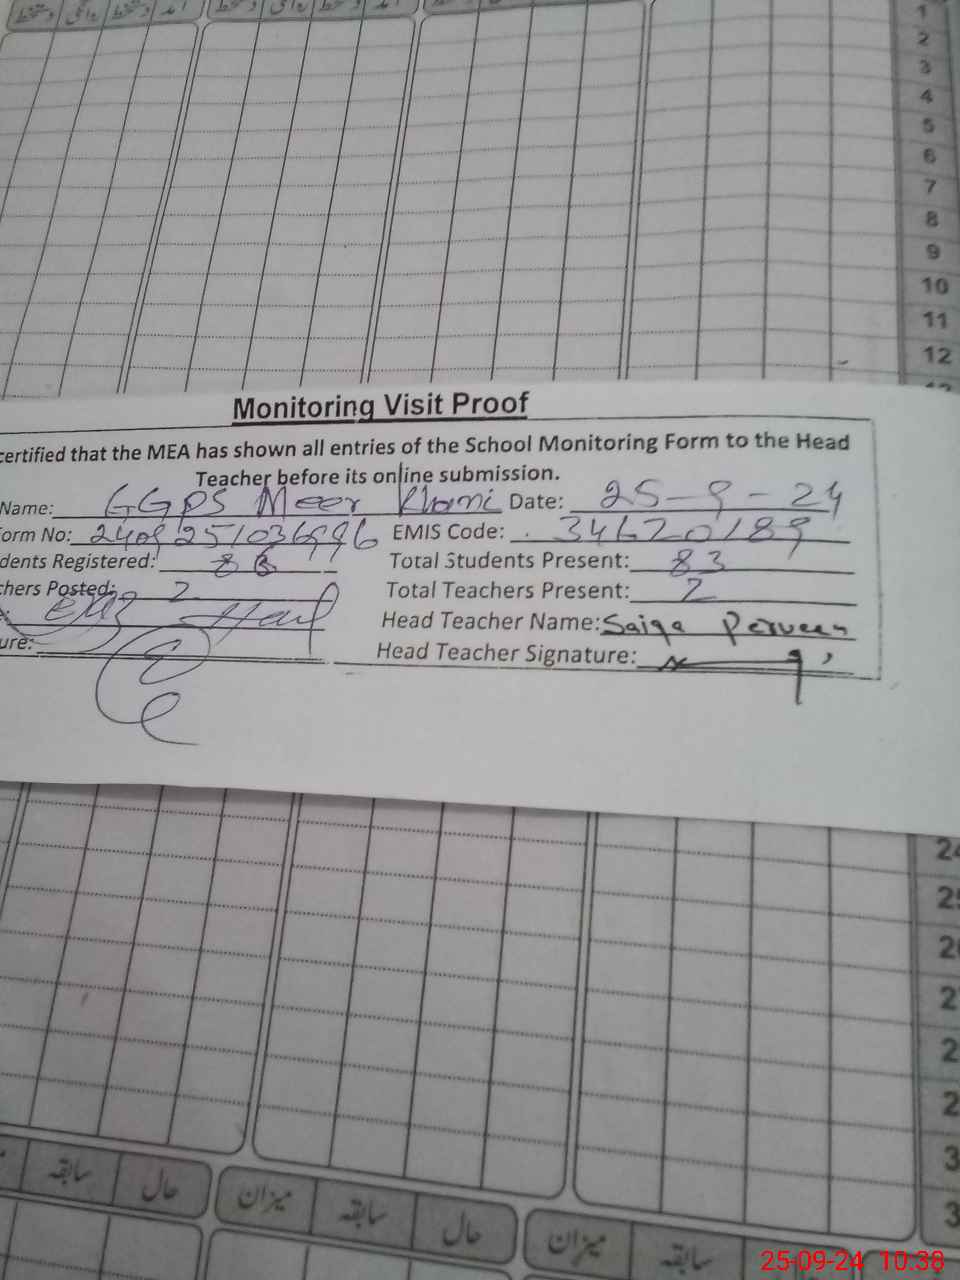 1
2
3
4
5
6
7
8
9
10
11
12
Monitoring Visit Proof
certified that the MEA has shown all entries of the School Monitoring Form to the Head
Teacher before its online submission.
Name: GGPS Meer Khani Date: 25-9-24
orm No: EMIS Code: 34620189
dents Registered: Total Students Present: 83
chers Posted: 2 Total Teachers Present: 2
Head Teacher Name: Saiqa Perveen
ure: Head Teacher Signature:
سابقہ حال میزان سابقہ حال میزان سابقہ
25-09-24 10:38